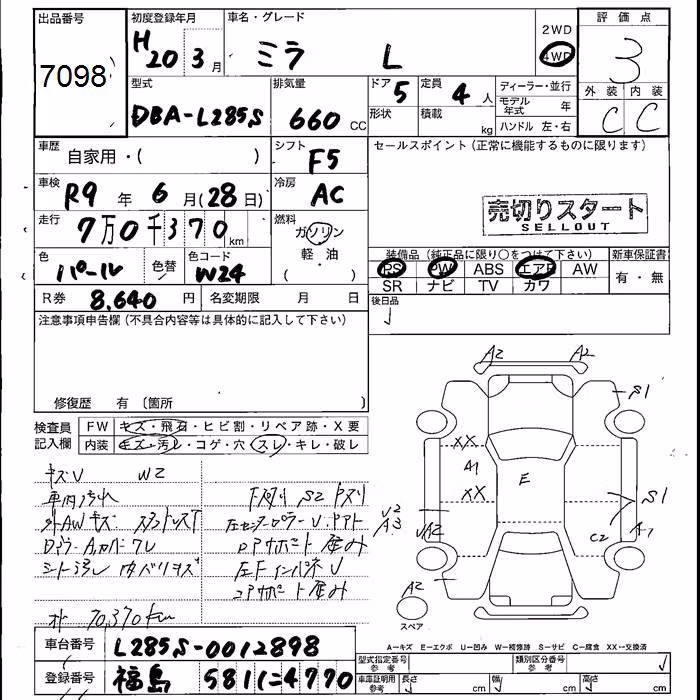 出品番号
7098
初度登録年月
H20 3月
車名・グレード
ミラ L
2WD
4WD
評価点
3
外装 内装
C C
型式
DBA-L285S
排気量
660 CC
ドア
5
形状
定員
4人
積載
kg
ディーラー・並行
モデル年式 年
ハンドル 左・右
車歴
自家用・( )
シフト
F5
車検
R9年 6月(28日)
冷房
AC
走行
7万0千370km
燃料
ガソリン
軽・油
( )
色
パール
色替
色コード
W24
R券 8,640円
名変期限 月 日
セールスポイント(正常に機能するものに限ります)
売切りスタート
SELLOUT
装備品(純正品に限り○をつけて下さい)
PS PW ABS エアB AW
SR ナビ TV カワ
新車保証書
有・無
後日品
注意事項申告欄(不具合内容等は具体的に記入して下さい)
修復歴 有〔箇所 〕
検査員記入欄
FW キズ・飛石・ヒビ割・リペア跡・X要
内装 キズ・汚レ・コゲ・穴・スレ・キレ・破レ
キズV W2
車内汚れ
外AWキズ
シート汚レ
70,370km
A2 A2
S1
XX
A1
E
XX
S1
A3
C2
A2
スペア
A=キズ E=エクボ U=凹み W=補修跡 S=サビ C=腐食 XX=交換済
車台番号 L285S-0012898
登録番号 福島 581に4770
型式指定番号参考
類別区分番号参考
車庫証明用参考 長さ cm 幅 cm 高さ cm